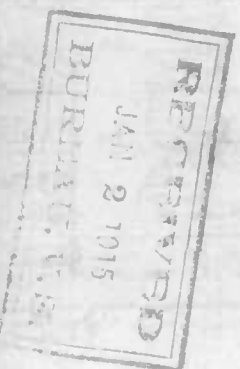 RECEIVED
JAN 2 1915
BUREAU